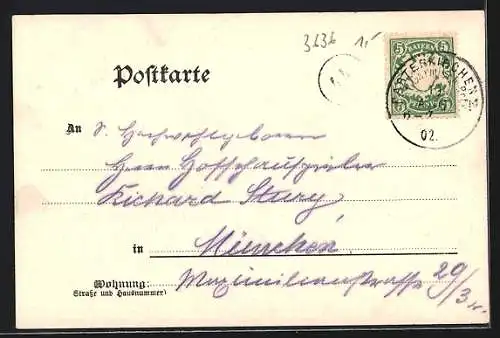 3236 1.-
BAYERN
5 5
PFENNIG
ASTERKIRCHEN
02.
Postkarte
An S. Hochwohlgeboren
Herrn Hofschauspieler
Richard Stury
in München.
Wohnung: Maximilianstraße 20/3 r.
(Straße und Hausnummer)